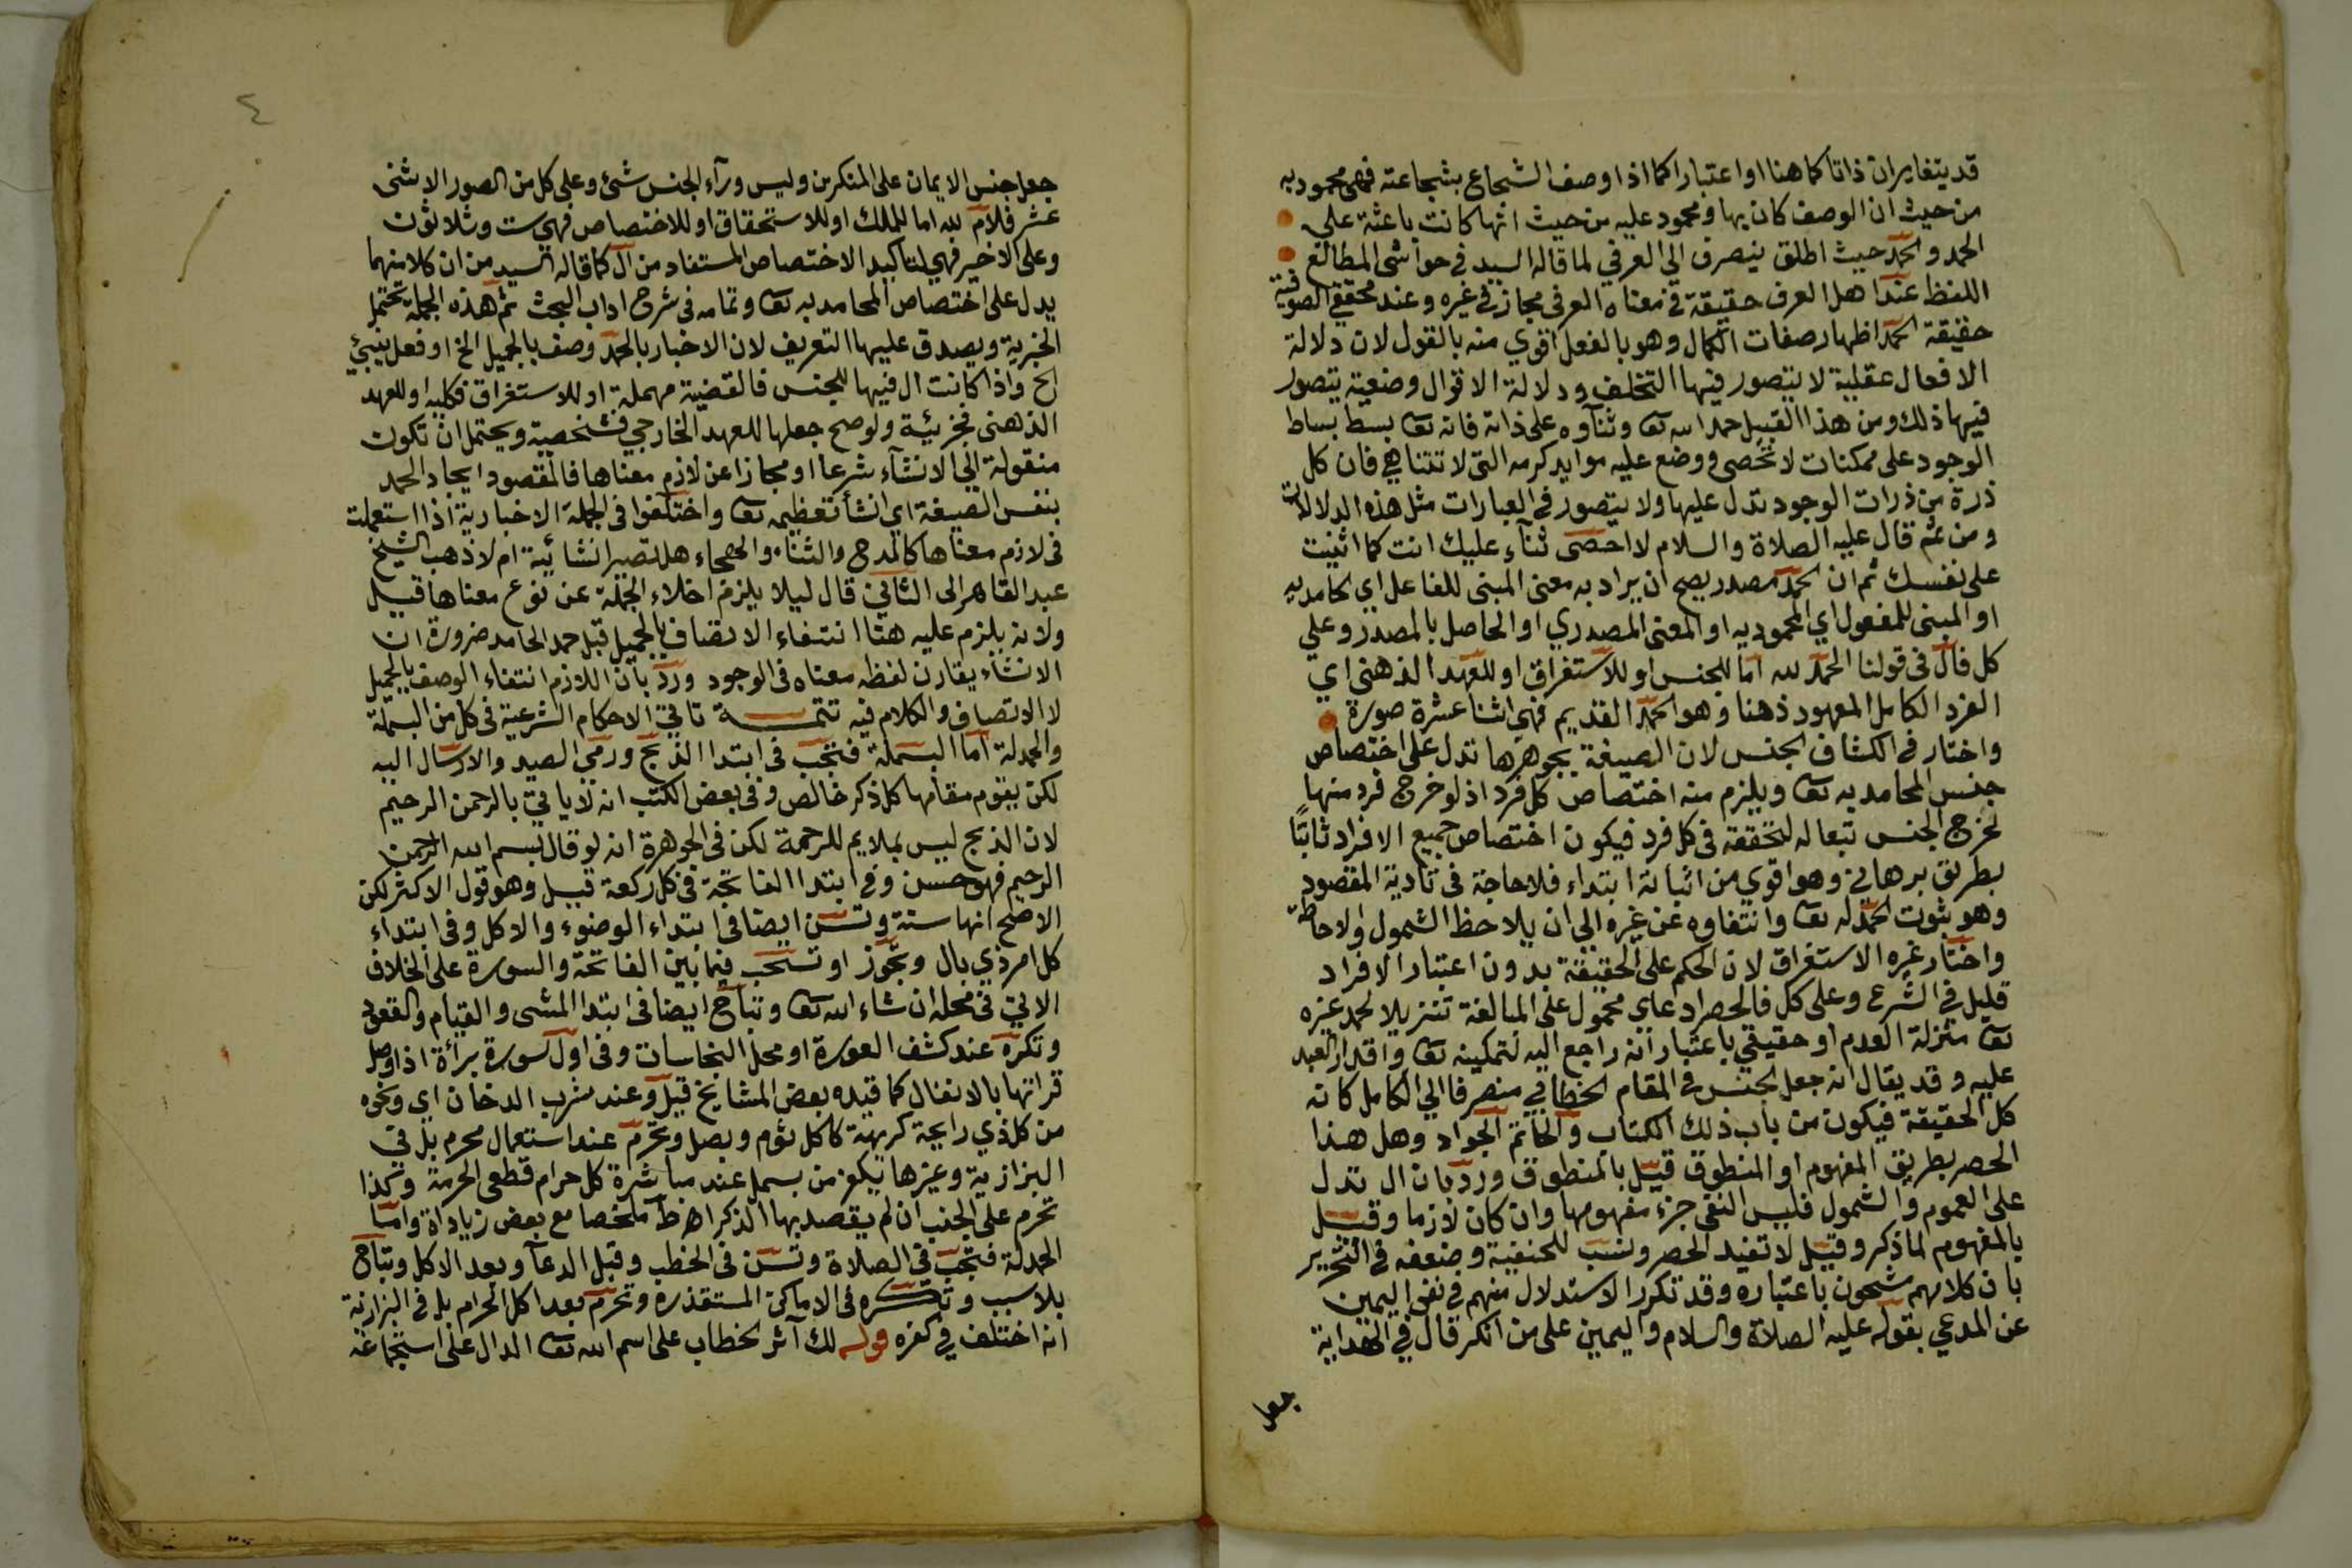 قد يتغايران ذاتا كما هنا او اعتبارا كما اذا وصف الشجاع بشجاعته فهي محمود به
من حيث ان الوصف كان بها ومحمود عليه من حيث انها كانت باعثة على
الحمد والحمد حيث اطلق ينصرف الي العرفي لما قاله السيد في حواشى المطالع
اللفظ عند اهل العرف حقيقة في معناه العرفى مجاز في غيره وعند محققي الصوفية
حقيقة الحمد اظهار صفات الكمال وهو بالفعل اقوي منه بالقول لان دلالة
الافعال عقلية لا يتصور فيها التخلف ودلالة الاقوال وضعية يتصور
فيها ذلك ومن هذا القبيل حمد الله تعا وثناوه على ذاته فانه تعا بسط بساط
الوجود على ممكنات لا تحصى ووضع عليه موايد كرمه التى لا تتناهي فان كل
ذرة من ذرات الوجود تدل عليها ولا يتصور في العبارات مثل هذه الدلالات
ومن ثم قال عليه الصلاة والسلام لا احصى ثناء عليك انت كما اثنيت
على نفسك ثم ان الحمد مصدر يصح ان يراد به معنى المبنى للفاعل اي الحامديه
او المبنى للمفعول اي المحموديه او المعنى المصدري او الحاصل بالمصدر وعلي
كل فال فى قولنا الحمد لله اما للجنس او للاستغراق او للعهد الذهنى اي
الفرد الكامل المعهود ذهنا وهو الحمد القديم فهى اثنا عشرة صورة
واختار في الكشاف الجنس لان الصيغة بجوهرها تدل على اختصاص
جنس المحامد به تعا ويلزم منه اختصاص كل فرد اذ لو خرج فرد منها
لخرج الجنس تبعا له لتحققه فى كل فرد فيكون اختصاص جميع الافراد ثابتا
بطريق برهاني وهو اقوي من اثباته ابتداء فلا حاجة فى تادية المقصود
وهو ثبوت الحمد له تعا وانتفاوه عن غيره الى ان يلاحظ الشمول والاحاطة
واختار غيره الاستغراق لان الحكم على الحقيقة بدون اعتبار الافراد
قليل في الشرع وعلى كل فالحصر ادعاي محمول على المبالغة تنزيلا لحمد غيره
تعا منزلة العدم او حقيقي باعتبار انه راجع اليه لتمكينه تعا واقدار العبد
عليه وقد يقال انه جعل الجنس في المقام الخطابي منصرفا الي الكامل كانه
كل الحقيقة فيكون من باب ذلك الكتاب والحاتم الجواد وهل هذا
الحصر بطريق المفهوم او المنطوق قيل بالمنطوق ورد بان ال تدل
على العموم والشمول فليس النفى جزء مفهومها وان كان لازما وقيل
بالمفهوم لما ذكر وقيل لا تفيد الحصر ونسب للحنفية وضعفه في التحرير
بان كلامهم مشحون باعتباره وقد تكرر الاستدلال منهم في نفى اليمين
عن المدعي بقوله عليه الصلاة والسلام واليمين على من انكر قال في الهداية
جعل
٤
جعل جنس الايمان على المنكرين وليس ورآء الجنس شئ وعلى كل من الصور الاثنى
عشر فلام لله اما للملك او للاستحقاق او للاختصاص فهي ست وثلاثون
وعلى الاخير فهي لتاكيد الاختصاص المستفاد من ال كما قاله السيد من ان كلا منهما
يدل على اختصاص المحامد به تعا وتمامه فى شرح اداب البحث ثم هذه الجملة تحتمل
الخبرية ويصدق عليها التعريف لان الاخبار بالحمد وصف بالجميل الخ او فعل ينبئ
الخ واذا كانت ال فيها للجنس فالقضية مهملة او للاستغراق فكليه او للعهد
الذهنى فجزئية ولو صح جعلها للعهد الخارجي فشخصية ويحتمل ان تكون
منقولة الى الانشاء شرعا او مجازا عن لازم معناها فالمقصود ايجاد الحمد
بنفس الصيغة اي انشأ تعظيمه تعا واختلفوا فى الجملة الاخبارية اذا استعملت
فى لازم معناها كالمدح والثناء والهجاء هل تصير انشائية ام لا ذهب الشيخ
عبد القاهر الى الثاني قال ليلا يلزم اخلاء الجملة عن نوع معناها قيل
ولانه يلزم عليه هنا انتفاء الاتصاف بالجميل قبل حمد الحامد ضرورة ان
الانشاء يقارن لفظه معناه فى الوجود ورد بان اللازم انتفاء الوصف بالجميل
لا الاتصاف والكلام فيه تتمة تاتي الاحكام الشرعية فى كل من البسملة
والحمدلة اما البسملة فتجب فى ابتدا الذبح ورمي الصيد والارسال اليه
لكن يقوم مقامها كل ذكر خالص وفى بعض الكتب انه لا ياتي بالرحمن الرحيم
لان الذبح ليس بملايم للرحمة لكن فى الجوهرة انه لو قال بسم الله الرحمن
الرحيم فهو حسن وفى ابتدا الفاتحة فى كل ركعة قيل وهو قول الاكثر لكن
الاصح انها سنة وتسن ايضا فى ابتداء الوضوء والاكل وفى ابتداء
كل امر ذي بال وتجوز او تستحب فيما بين الفاتحة والسورة على الخلاف
الاتي فى محله ان شاء الله تعا وتباح ايضا فى ابتدا المشى والقيام والقعود
وتكره عند كشف العورة او محل النجاسات وفى اول سورة براءة اذا وصل
قراتها بالانفال كما قيده بعض المشايخ قيل وعند شرب الدخان اي ونحوه
من كل ذي رايحة كريهة كاكل ثوم وبصل وتحرم عند استعمال محرم بل فى
البزازية وغيرها يكفر من بسمل عند مباشرة كل حرام قطعى الحرمة وكذا
تحرم على الجنب ان لم يقصد بها الذكر اهـ ط ملخصا مع بعض زيادة واما
الحمدلة فتجب فى الصلاة وتسن فى الخطب وقبل الدعآ وبعد الاكل وتباح
بلا سبب وتكره فى الاماكن المستقذره وتحرم بعد اكل الحرام بل فى البزازية
انه اختلف في كفره قوله لك آثر الخطاب على اسم الله تعا الدال على استجماعه